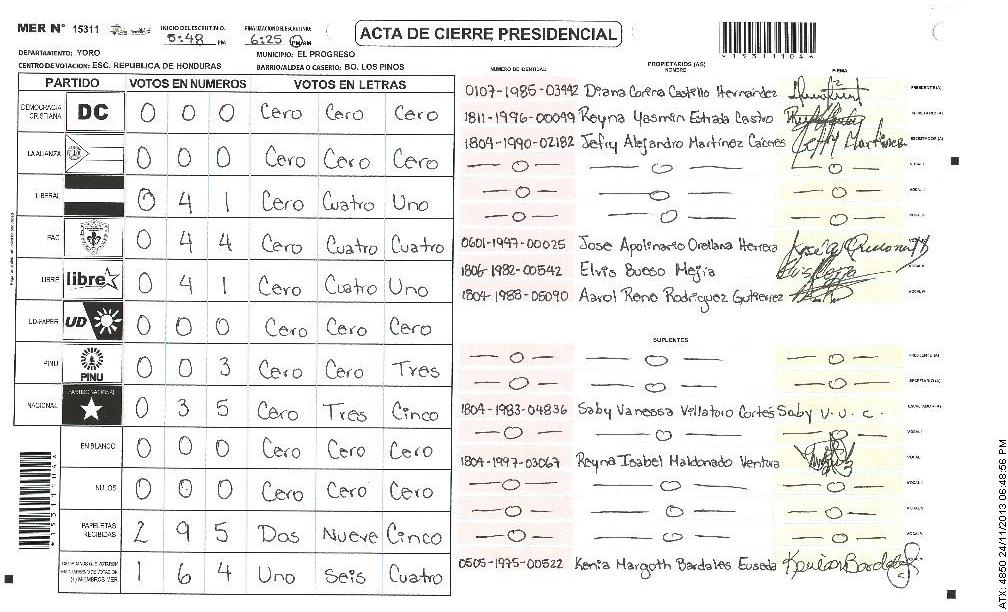 MER N° 15311
INICIO DEL ESCRUTINIO:
5:48 PM
FINALIZACION DEL ESCRUTINIO:
6:25 PM AM
ACTA DE CIERRE PRESIDENCIAL
*15311104*
DEPARTAMENTO: YORO
MUNICIPIO: EL PROGRESO
CENTRO DE VOTACION: ESC. REPUBLICA DE HONDURAS
BARRIO/ALDEA O CASERIO: BO. LOS PINOS
PARTIDO VOTOS EN NUMEROS VOTOS EN LETRAS
DEMOCRACIA CRISTIANA DC 0 0 0 Cero Cero Cero
LA ALIANZA 0 0 0 Cero Cero Cero
LIBERAL 0 4 1 Cero Cuatro Uno
PAC 0 4 4 Cero Cuatro Cuatro
LIBRE libre 0 4 1 Cero Cuatro Uno
UD-FAPER UD 0 0 0 Cero Cero Cero
PINU PINU 0 0 3 Cero Cero Tres
NACIONAL PARTIDO NACIONAL 0 3 5 Cero Tres Cinco
EN BLANCO 0 0 0 Cero Cero Cero
NULOS 0 0 0 Cero Cero Cero
PAPELETAS RECIBIDAS 2 9 5 Dos Nueve Cinco
(+) MIEMBROS MER 1 6 4 Uno Seis Cuatro
*15311104*
PROPIETARIOS (AS)
NUMERO DE IDENTIDAD NOMBRE FIRMA
0107-1985-03442 Diana Corina Castillo Hernández PRESIDENTE (A)
1811-1996-00099 Reyna Yasmin Estrada Castro SECRETARIO (A)
1804-1990-02182 Jefry Alejandro Martínez Jeffry Martinez ESCRUTADOR (A)
— 0 — — 0 — — 0 — VOCAL I
— 0 — — 0 — — 0 — VOCAL II
— 0 — — 0 — — 0 — VOCAL III
0601-1947-00025 Jose Apolinario Orellana Herrera
1806-1982-00542 Elvis Bueso Mejia
1804-1988-05090 Aarol Rene Rodriguez Gutierrez
SUPLENTES
— 0 — — 0 — — 0 — PRESIDENTE (A)
— 0 — — 0 — — 0 — SECRETARIO (A)
1804-1983-04836 Saby Vanessa Villatoro Cortés Saby V. V. C. ESCRUTADOR (A)
— 0 — — 0 — — 0 — VOCAL I
1804-1997-03067 Reyna Isabel Maldonado Ventura
— 0 — — 0 — — 0 —
— 0 — — 0 — — 0 —
— 0 — — 0 — — 0 —
0505-1975-00522 Kenia Margoth Bardales Euseda
ATX: 4850 24/11/2013 06:48:56 PM